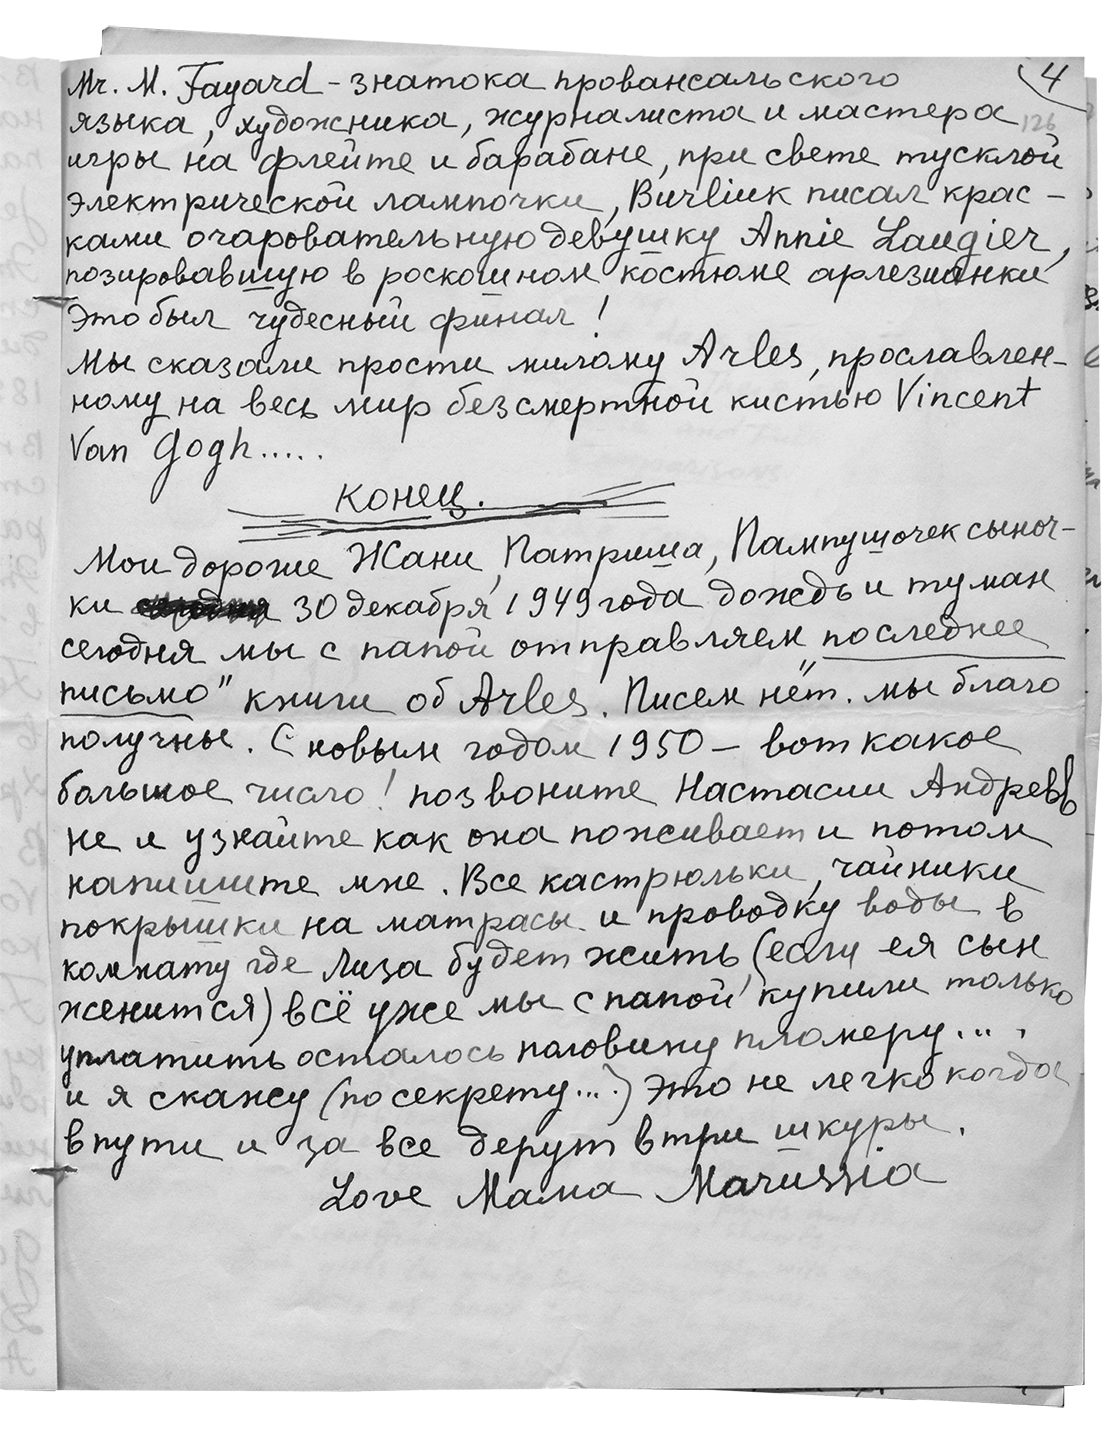 4
Mr. M. Fayard – знатока провансальского
языка, художника, журналиста и мастера
126
игры на флейте и барабане, при свете тусклой
электрической лампочки, Burliuk писал крас-
ками очаровательную девушку Annie Laugier,
позировавшую в роскошном костюме арлезианки
Это был чудесный финал!
Мы сказали прости милому Arles, прославлен-
ному на весь мир безсмертной кистью Vincent
Van Gogh.....
Конец.
Мои дорогие Жани, Патриша, Пампушочек сыноч-
ки 30 декабря 1949 года дождь и туман
сегодня мы с папой отправляем последнее
письмо" книги об Arles. Писем нет. мы благо
получны. С новым годом 1950 – вот какое
большое число! позвоните Настасии Андреев
не и узнайте как она поживает и потом
напишите мне. Все кастрюльки, чайники
покрышки на матрасы и проводку воды в
комнату где Лиза будет жить (если ея сын
женится) всё уже мы с папой купили только
уплатить осталось половину пломеру... .
и я скажу (по секрету...) это не легко когда
в пути и за все дерут в три шкуры.
Love Мама Marussia